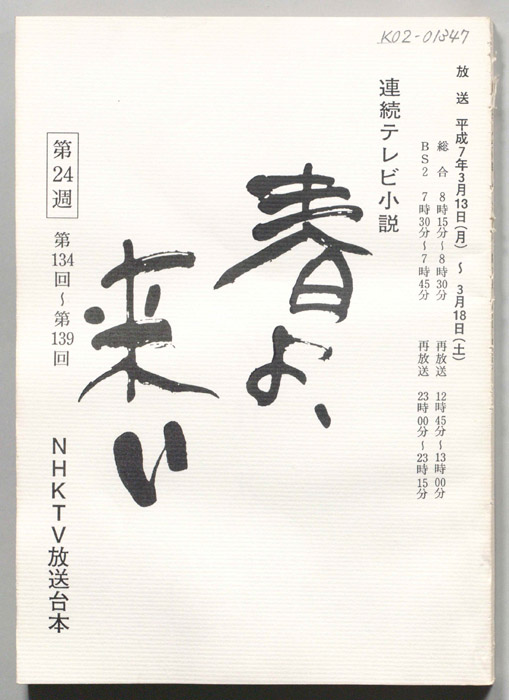 K02-01347
放送 平成7年3月13日(月)～3月18日(土)
総合 8時15分～8時30分 再放送 12時45分～13時00分
BS2 7時30分～7時45分 再放送 23時00分～23時15分
連続テレビ小説
春よ、
来い
第24週
第134回～第139回
NHKTV放送台本